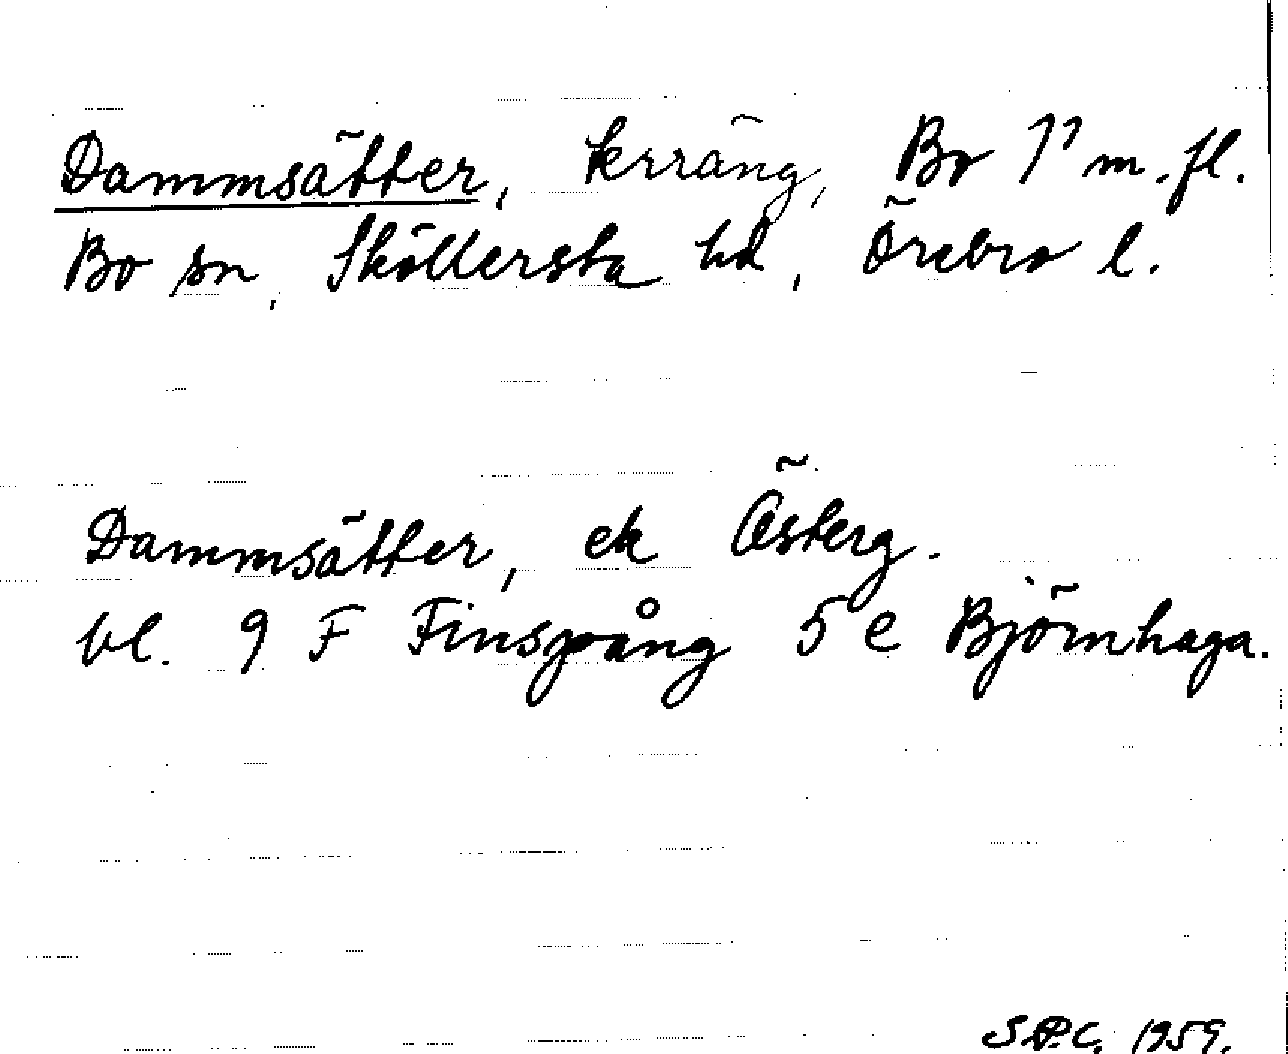 Dammsätter, terräng, Bo 1¹ m.fl.
Bo sn, Sköllersta hd, Örebro l.
Dammsätter, ek Österg.
bl. 9 F Finspång 5 e Björnhaga.
S.P.C. 1959.